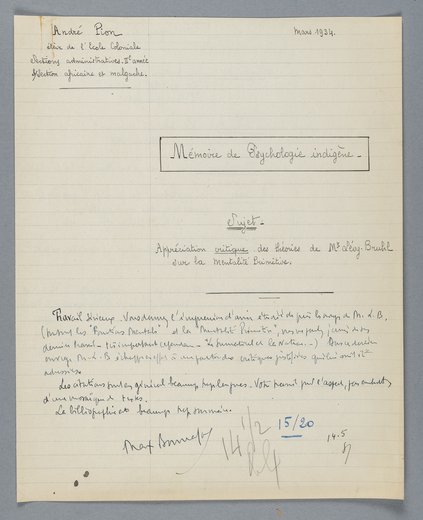 André Pion
Mars 1934.
élève de l'Ecole Coloniale
sections administratives. 2e année
section africaine et malgache.
Mémoire de Psychologie indigène -
Sujet -
Appréciation critique des théories de Mr Lévy-Bruhl
sur la Mentalité Primitive.
Travail sérieux. Vous donnez l'impression d'avoir étudié de près les ouvrages de M. L-B,
(surtout les "Fonctions Mentales" et la "Mentalité Primitive",
dernier travail - très important cependant - "Le surnaturel et la Nature" -) Dans ce dernier
ouvrage M. L-B échappe à une partie des critiques justifiées qui lui ont été
adressées.
Les citations sont en général beaucoup trop longues. Votre travail
d'une mosaïque de textes.
La bibliographie est beaucoup trop sommaire.
14 1/2
15/20
14.5